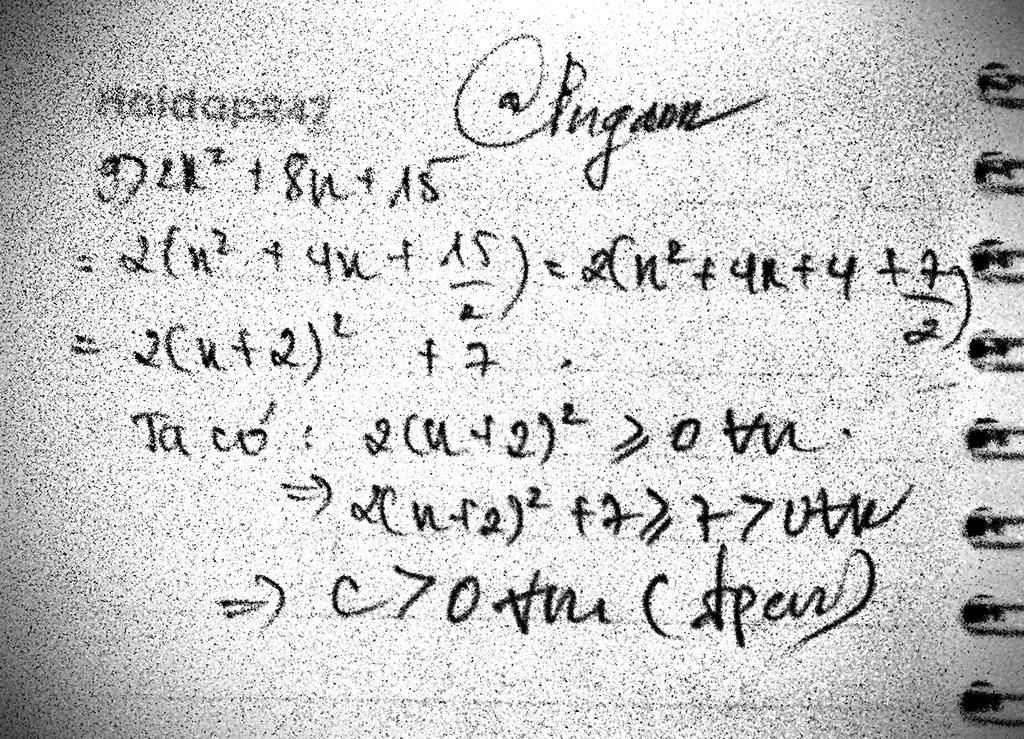 Hoidap247
@Pugaon
g) 2x² + 8x + 15
= 2(x² + 4x + 15/2) = 2(x² + 4x + 4 + 7/2)
= 2(x+2)² + 7.
Ta có: 2(x+2)² ⩾ 0 ∀x.
=> 2(x+2)² + 7 ⩾ 7 > 0 ∀x
=> C > 0 ∀x (đpcm)